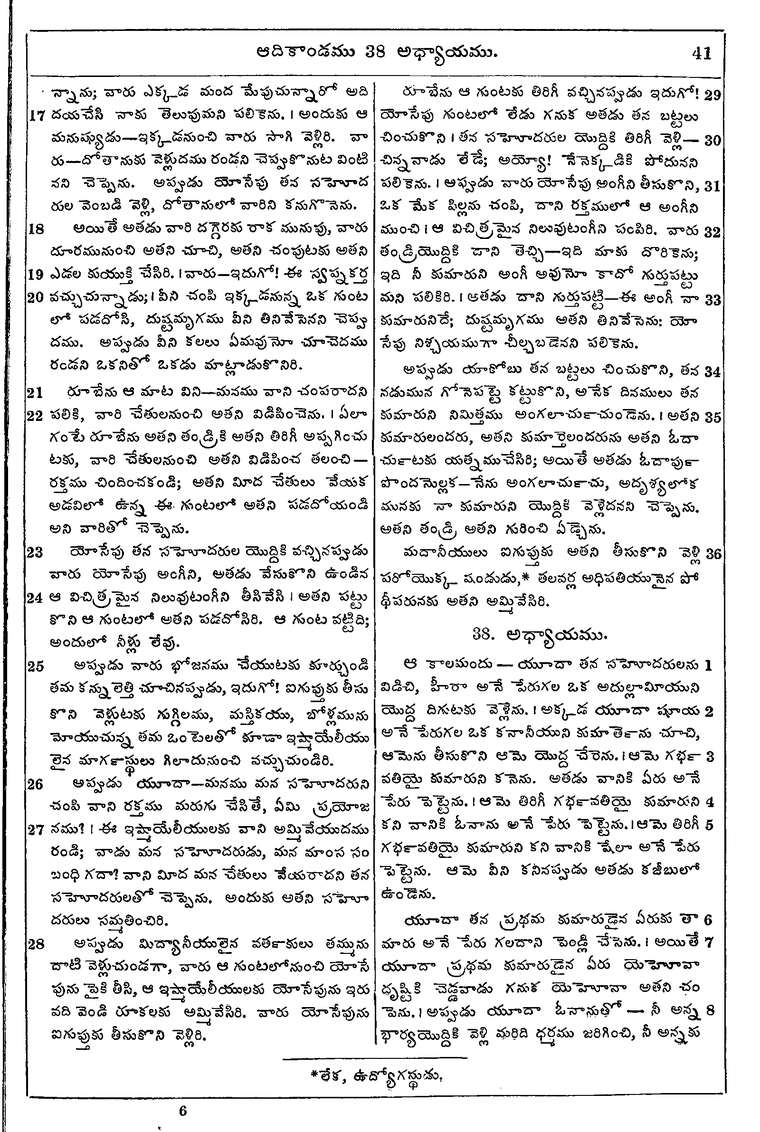 ఆదికాండము 38 అధ్యాయము. 41
న్నాను; వారు ఎక్కడ మంద మేపుచున్నారో అది
17 దయచేసి నాకు తెలుపుమని పలికెను. । అందుకు ఆ
మనుష్యుడు—ఇక్కడనుంచి వారు సాగి వెళ్లిరి. వా
రు—దోతానుకు వెళ్లుదము రండని చెప్పుకొనుట వింటి
నని చెప్పెను. అప్పుడు యోసేపు తన సహోద
రుల వెంబడి వెళ్లి, దోతానులో వారిని కనుగొనెను.
18 అయితే అతడు వారి దగ్గరకు రాక మునుపు, వారు
దూరమునుంచి అతని చూచి, అతని చంపుటకు అతని
19 ఎడల కుయుక్తి చేసిరి. । వారు—ఇదుగో! ఈ స్వప్నకర్త
20 వచ్చుచున్నాడు; । వీని చంపి ఇక్కడనున్న ఒక గుంట
లో పడదోసి, దుష్టమృగము వీని తినివేసెనని చెప్పు
దము. అప్పుడు వీని కలలు ఏమవునో చూచెదము
రండని ఒకనితో ఒకడు మాట్లాడుకొనిరి.
21 రూబేను ఆ మాట విని—మనము వాని చంపరాదని
22 పలికి, వారి చేతులనుంచి అతని విడిపించెను. । ఏలా
గంటే రూబేను అతని తండ్రికి అతని తిరిగీ అప్పగించు
టకు, వారి చేతులనుంచి అతని విడిపించ తలంచి—
రక్తము చిందించకండి; అతని మీద చేతులు వేయక
అడవిలో ఉన్న ఈ గుంటలో అతని పడదోయండి
అని వారితో చెప్పెను.
23 యోసేపు తన సహోదరుల యొద్దికి వచ్చినప్పుడు
వారు యోసేపు అంగీని, అతడు వేసుకొని ఉండిన
24 ఆ విచిత్రమైన నిలువుటంగీని తీసివేసి । అతని పట్టు
కొని ఆ గుంటలో అతని పడదోసిరి. ఆ గుంట వట్టిది;
అందులో నీళ్లు లేవు.
25 అప్పుడు వారు భోజనము చేయుటకు కూర్చుండి
తమ కన్నులెత్తి చూచినప్పుడు, ఇదుగో! ఐగుప్తుకు తీసు
కొని వెళ్లుటకు గుగ్గిలము, మస్తికయు, బోళ్లమును
మోయుచున్న తమ ఒంటెలతో కూడా ఇష్మాయేలీయు
లైన మార్గస్థులు గిలాదునుంచి వచ్చుచుండిరి.
26 అప్పుడు యూదా—మనము మన సహోదరుని
చంపి వాని రక్తము మరుగు చేసితే, ఏమి ప్రయోజ
27 నము? । ఈ ఇష్మాయేలీయులకు వాని అమ్మివేయుదము
రండి; వాడు మన సహోదరుడు, మన మాంస సం
బంధి గదా? వాని మీద మన చేతులు వేయరాదని తన
సహోదరులతో చెప్పెను. అందుకు అతని సహో
దరులు సమ్మతించిరి.
28 అప్పుడు మిద్యానీయులైన వర్తకులు తమ్మును
దాటి వెళ్లుచుండగా, వారు ఆ గుంటలోనుంచి యోసే
పును పైకి తీసి, ఆ ఇష్మాయేలీయులకు యోసేపును ఇరు
వది వెండి రూకలకు అమ్మివేసిరి. వారు యోసేపును
ఐగుప్తుకు తీసుకొని వెళ్లిరి.
రూబేను ఆ గుంటకు తిరిగీ వచ్చినప్పుడు ఇదుగో! 29
యోసేపు గుంటలో లేడు గనుక అతడు తన బట్టలు
చించుకొని । తన సహోదరుల యొద్దికి తిరిగీ వెళ్లి— 30
చిన్నవాడు లేడే; అయ్యో! నేనెక్కడికి పోదునని
పలికెను. । అప్పుడు వారు యోసేపు అంగీని తీసుకొని, 31
ఒక మేక పిల్లను చంపి, దాని రక్తములో ఆ అంగీని
ముంచి । ఆ విచిత్రమైన నిలువుటంగీని పంపిరి. వారు 32
తండ్రియొద్దికి దాని తెచ్చి—ఇది మాకు దొరికెను;
ఇది నీ కుమారుని అంగీ అవునో కాదో గుర్తుపట్టు
మని పలికిరి. । అతడు దాని గుర్తుపట్టి—ఈ అంగీ నా 33
కుమారునిదే; దుష్టమృగము అతని తినివేసెను: యో
సేపు నిశ్చయముగా చీల్చబడెనని పలికెను.
అప్పుడు యాకోబు తన బట్టలు చించుకొని, తన 34
నడుమున గోనెపట్టె కట్టుకొని, అనేక దినములు తన
కుమారుని నిమిత్తము అంగలార్చుచుండెను. । అతని 35
కుమారులందరు, అతని కుమార్తెలందరును అతని ఓదా
ర్చుటకు యత్నముచేసిరి; అయితే అతడు ఓదార్పు
పొందనొల్లక—నేను అంగలార్చుచు, అదృశ్యలోక
మునకు నా కుమారుని యొద్దికి వెళ్లెదనని చెప్పెను.
అతని తండ్రి అతని గురించి ఏడ్చెను.
మదానీయులు ఐగుప్తుకు అతని తీసుకొని వెళ్లి 36
ఫరోయొక్క షండుడు,* తలవర్ల అధిపతియునైన పో
థీఫరునకు అతని అమ్మివేసిరి.
38. అధ్యాయము.
ఆ కాలమందు — యూదా తన సహోదరులను 1
విడిచి, హీరా అనే పేరుగల ఒక అదుల్లామీయుని
యొద్ద దిగుటకు వెళ్లెను. । అక్కడ యూదా షూయ 2
అనే పేరుగల ఒక కనానీయుని కుమార్తెను చూచి,
ఆమెను తీసుకొని ఆమె యొద్ద చేరెను. । ఆమె గర్భ 3
వతియై కుమారుని కనెను. అతడు వానికి ఏరు అనే
పేరు పెట్టెను. । ఆమె తిరిగీ గర్భవతియై కుమారుని 4
కని వానికి ఓనాను అనే పేరు పెట్టెను. । ఆమె తిరిగీ 5
గర్భవతియై కుమారుని కని వానికి షేలా అనే పేరు
పెట్టెను. ఆమె వీని కనినప్పుడు అతడు కజీబులో
ఉండెను.
యూదా తన ప్రథమ కుమారుడైన ఏరుకు తా 6
మారు అనే పేరు గలదాని పెండ్లి చేసెను. । అయితే 7
యూదా ప్రథమ కుమారుడైన ఏరు యెహోవా
దృష్టికి చెడ్డవాడు గనుక యెహోవా అతని చం
పెను. । అప్పుడు యూదా ఓనానుతో — నీ అన్న 8
భార్యయొద్దికి వెళ్లి మరిది ధర్మము జరిగించి, నీ అన్నకు
*లేక, ఉద్యోగస్థుడు,
6